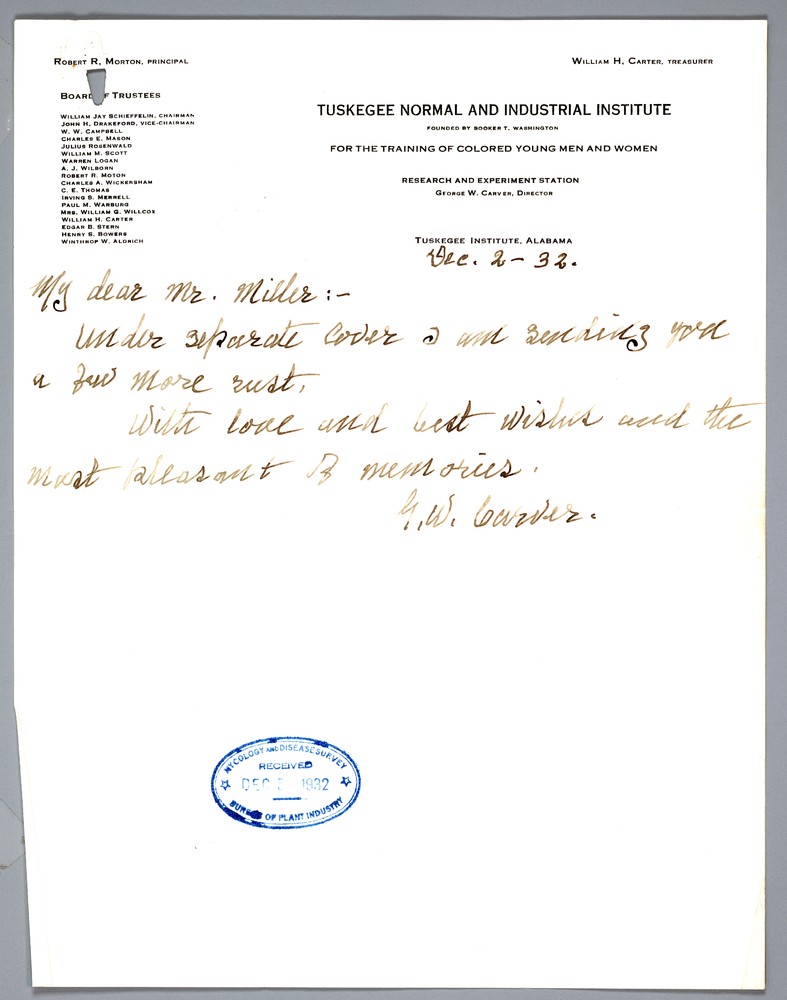 ROBERT R. MORTON, PRINCIPAL
WILLIAM H. CARTER, TREASURER
BOARD OF TRUSTEES
WILLIAM JAY SCHIEFFELIN, CHAIRMAN
JOHN H. DRAKEFORD, VICE-CHAIRMAN
W. W. CAMPBELL
CHARLES E. MASON
JULIUS ROSENWALD
WILLIAM M. SCOTT
WARREN LOGAN
A. J. WILBORN
ROBERT R. MOTON
CHARLES A. WICKERSHAM
C. E. THOMAS
IRVING S. MERRELL
PAUL M. WARBURG
MRS. WILLIAM G. WILLCOX
WILLIAM H. CARTER
EDGAR B. STERN
HENRY S. BOWERS
WINTHROP W. ALDRICH
TUSKEGEE NORMAL AND INDUSTRIAL INSTITUTE
FOUNDED BY BOOKER T. WASHINGTON
FOR THE TRAINING OF COLORED YOUNG MEN AND WOMEN
RESEARCH AND EXPERIMENT STATION
GEORGE W. CARVER, DIRECTOR
TUSKEGEE INSTITUTE, ALABAMA
Dec. 2-32.
My dear Mr. Miller:-
Under separate cover I am sending you
a few more rust.
With love and best wishes and the
most pleasant of memories.
G.W. Carver.
MYCOLOGY AND DISEASE SURVEY
RECEIVED
DEC 1932
BUREAU OF PLANT INDUSTRY